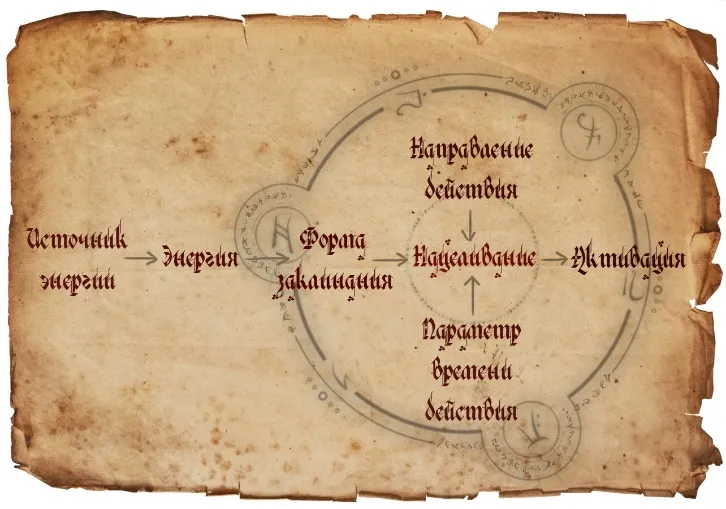 Направление
действия
Источник
энергии
Энергия
Форма
заклинания
Нацеливание
Активация
Параметр
времени
действия